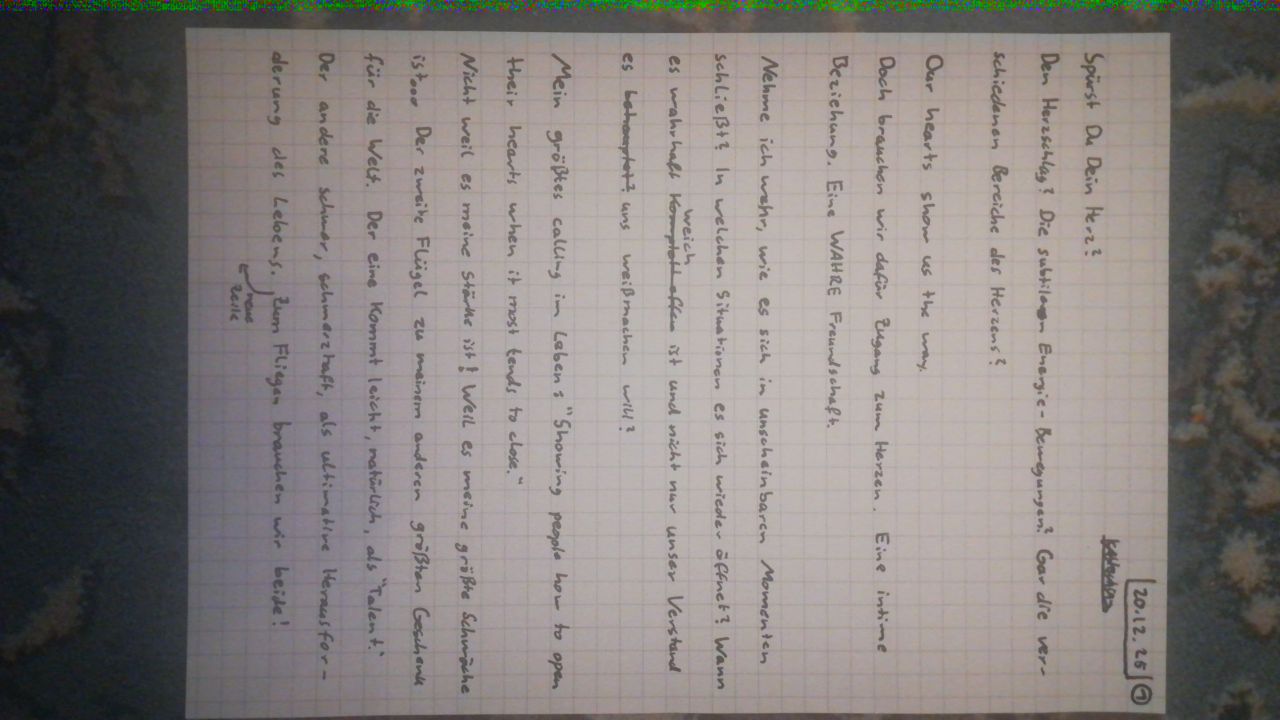 20.12.25 ①
Spürst Du Dein Herz?
Den Herzschlag? Die subtilen Energie-Bewegungen? Gar die ver-
schiedenen Bereiche des Herzens?
Our hearts show us the way.
Doch brauchen wir dafür Zugang zum Herzen. Eine intime
Beziehung. Eine WAHRE Freundschaft.
Nehme ich wahr, wie es sich in unscheinbaren Momenten
schließt? In welchen Situationen es sich wieder öffnet? Wann
weich
es wahrhaft komplett offen ist und nicht nur unser Verstand
es behauptet? uns weißmachen will?
Mein größtes calling im Leben: "Showing people how to open
their hearts when it most tends to close."
Nicht weil es meine Stärke ist! Weil es meine größte Schwäche
ist... Der zweite Flügel zu meinem anderen größten Geschenk
für die Welt. Der eine kommt leicht, natürlich, als "Talent."
Der andere schwer, schmerzhaft, als ultimative Herausfor-
derung des Lebens. Zum Fliegen brauchen wir beide!
neue
Zeile